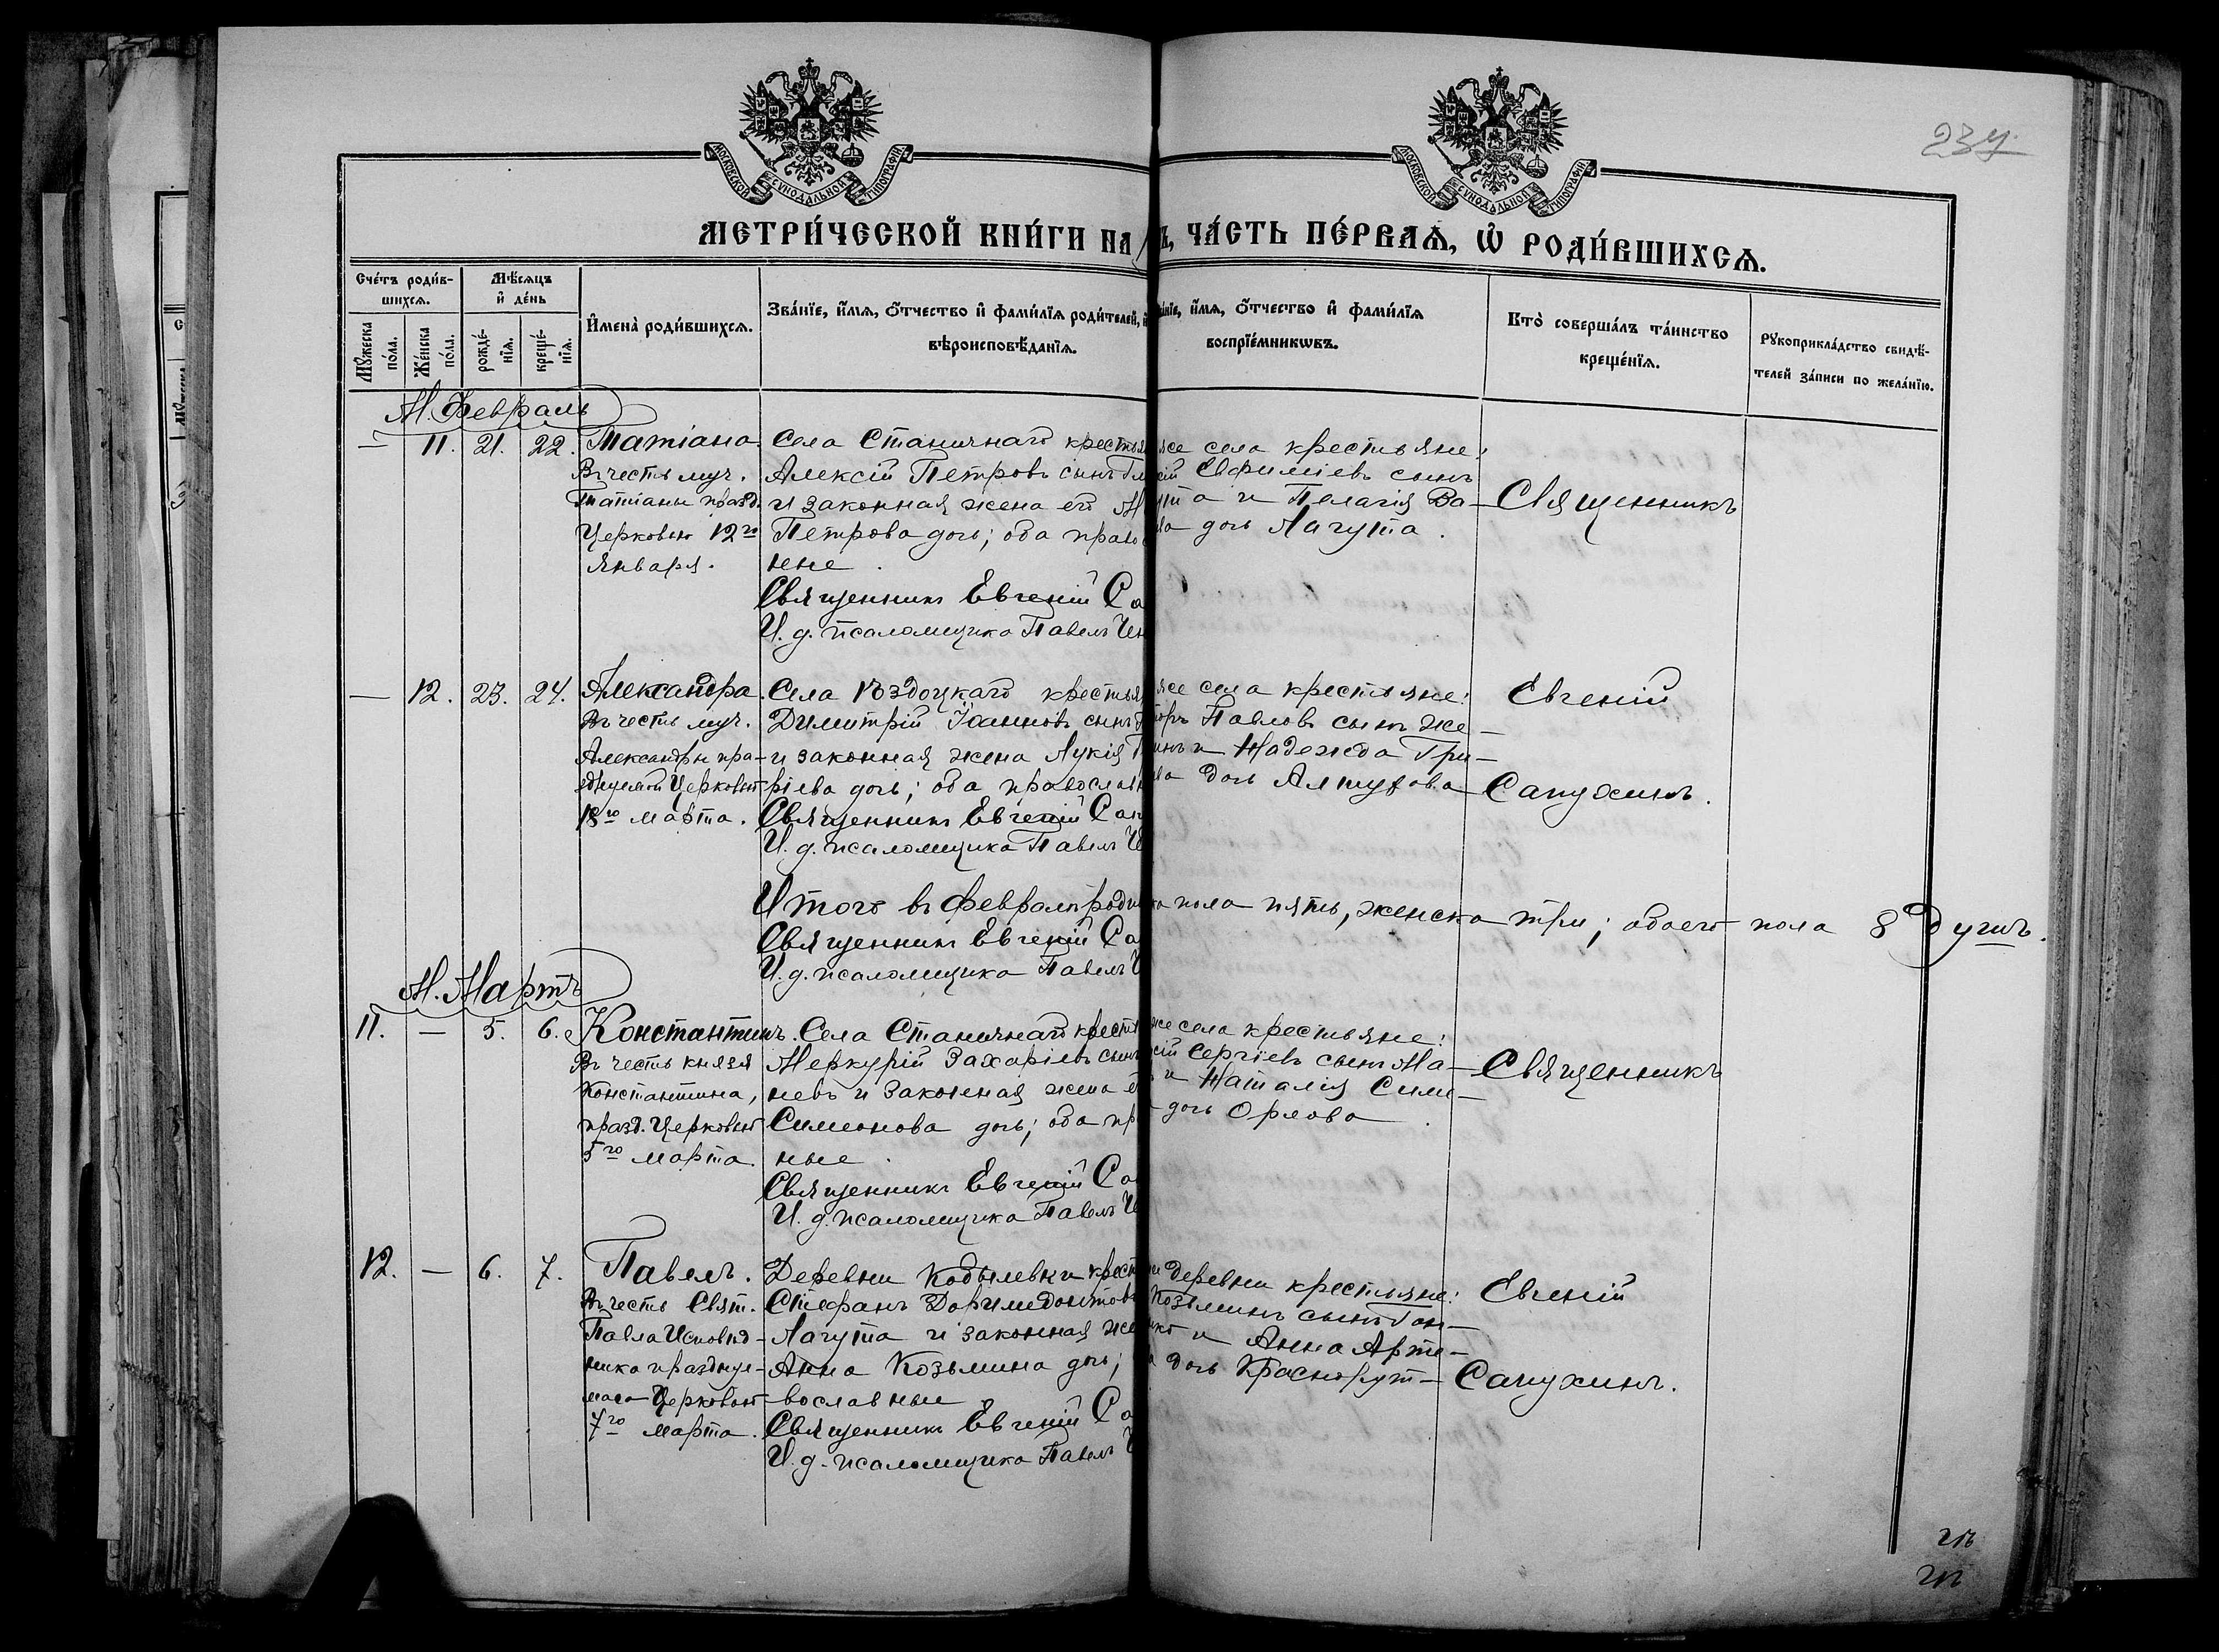 МОСКОВСКОЙ СѴНОДАЛЬНОЙ ТИПОГРАФІИ
МОСКОВСКОЙ СѴНОДАЛЬНОЙ ТИПОГРАФІИ
234
МЕТРИ́ЧЕСКОЙ КНИ́ГИ НА
Ъ, ЧА́СТЬ ПЕ́РВАѦ, Ѡ҆ РОДИ́ВШИХСѦ.
Сче́тъ роди́в-
шихсѧ.
Мѣ́сѧцъ
и҆ де́нь
Мꙋ́жеска
по́ла.
Же́нска
по́ла.
рожде́-
нїѧ.
креще́-
нїѧ.
И҆мена̀ роди́вшихсѧ.
Зва́нїе, и҆́мѧ, ѻ҆́тчество и҆ фами́лїѧ роди́телей,
вѣроисповѣ́данїѧ.
и҆́мѧ, ѻ҆́тчество и҆ фами́лїѧ
воспрїе́мникѡвъ.
Кто̀ соверша́лъ та́инство
креще́нїѧ.
Рꙋкоприкла́дство свидѣ́-
телей за́писи по жела́нїю.
М. Февраль
— 11. 21. 22. Татіана
Въ честь муч.
татіаны празд.
Церковью 12го
Января.
Села Станичнаго крестья
Алексій Петровъ сынъ
и законная жена его
Петрова дочь; оба право
ные.
Священникъ Евгеній Са
И. д. псаломщика Павелъ
же села крестьяне:
Евфиміев сынъ
и Пелагія Ва-
дочь Лагута.
Священникъ
— 12. 23. 24. Александра.
Въ честь муч.
Александры пра-
зднуемой Церковью
18го марта.
Села Роздоцкаго крестья
Димитрій Іоанновъ сынъ
и законная жена Лукія
ріева дочь; оба православ
Священникъ Евгеній Сап
И. д. псаломщика Павелъ
же села крестьяне:
Павловъ сынъ Же-
и Надежда Гри-
дочь Алтухова
Евгеній
Сапухинъ.
Итого въ Февралѣ роди
пола пять, женска три; обоего пола 8 душъ.
Священникъ Евгеній Са
И. д. псаломщика Павелъ
М. Мартъ
11. — 5. 6. Константинъ.
Въ честь князя
Константина,
празд. Церковью
5го марта.
Села Станичнаго крестья
Меркурій Захаріевъ сынъ
невъ и законная жена
Симеонова дочь; оба пр
ные.
Священникъ Евгеній Са
И. д. псаломщика Павелъ
же села крестьяне:
Сергіевъ сынъ Ма-
и Наталія Симе-
дочь Орлова.
Священникъ
12. — 6. 7. Павелъ.
Въ честь Свят.
Павла Исповѣд-
ника празднуе-
маго Церковью
7го марта.
Деревни Кобылевки крест
Стефанъ Доримедонтовъ
Лагута и законная же
Анна Козьмина дочь;
вославные
Священникъ Евгеній Са
И. д. псаломщика Павелъ
деревни крестьяне:
Козьминъ сынъ Гон-
и Анна Арте-
дочь Краснорут-
Евгеній
Сапухинъ.